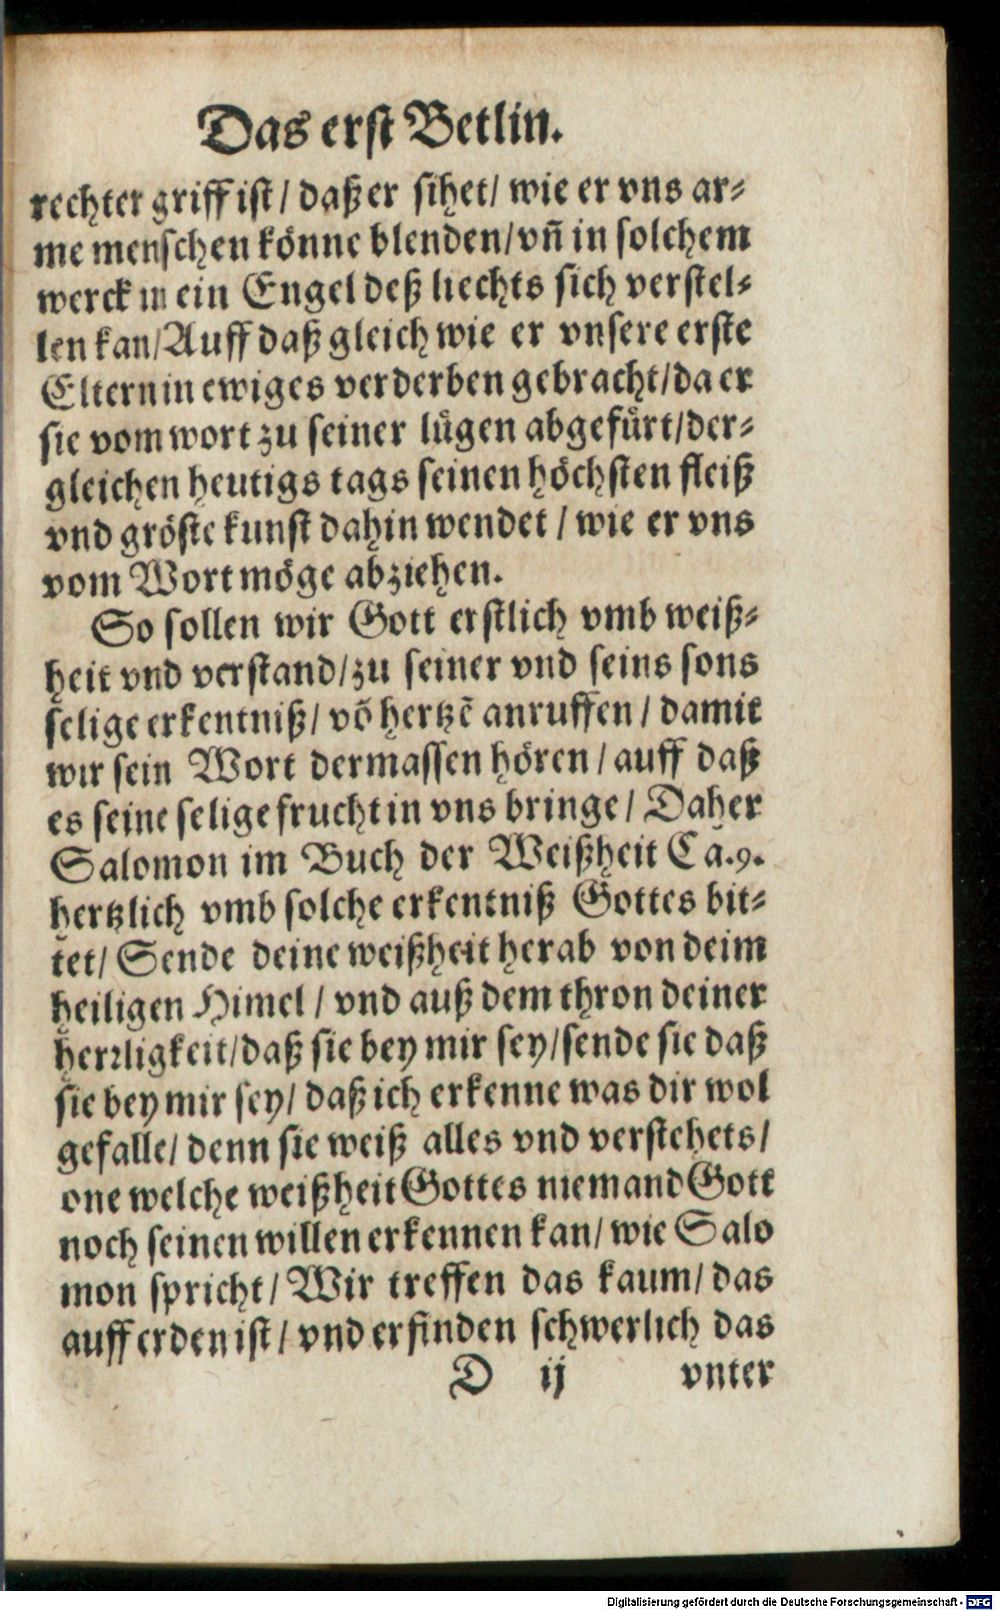 Das erst Betlin.
rechter griff ist / daß er sihet / wie er vns ar⸗
me menschen könne blenden / vñ in solchem
werck in ein Engel deß liechts sich verstel⸗
len kan / Auff daß gleich wie er vnsere erste
Eltern in ewiges verderben gebracht / da er
sie vom wort zu seiner lügen abgefürt / der⸗
gleichen heutigs tags seinen höchsten fleiß
vnd gröste kunst dahin wendet / wie er vns
vom Wort möge abziehen.
So sollen wir Gott erstlich vmb weiß⸗
heit vnd verstand / zu seiner vnd seins sons
selige erkentniß / võ hertzẽ anruffen / damit
wir sein Wort dermassen hören / auff daß
es seine selige frucht in vns bringe / Daher
Salomon im Buch der Weißheit Ca. 9.
hertzlich vmb solche erkentniß Gottes bit⸗
tet / Sende deine weißheit herab von deim
heiligen Himel / vnd auß dem thron deiner
herrligkeit / daß sie bey mir sey / sende sie daß
sie bey mir sey / daß ich erkenne was dir wol
gefalle / denn sie weiß alles vnd verstehets /
one welche weißheit Gottes niemand Gott
noch seinen willen erkennen kan / wie Salo
mon spricht / Wir treffen das kaum / das
auff erden ist / vnd erfinden schwerlich das
D ij vnter
Digitalisierung gefördert durch die Deutsche Forschungsgemeinschaft - DFG